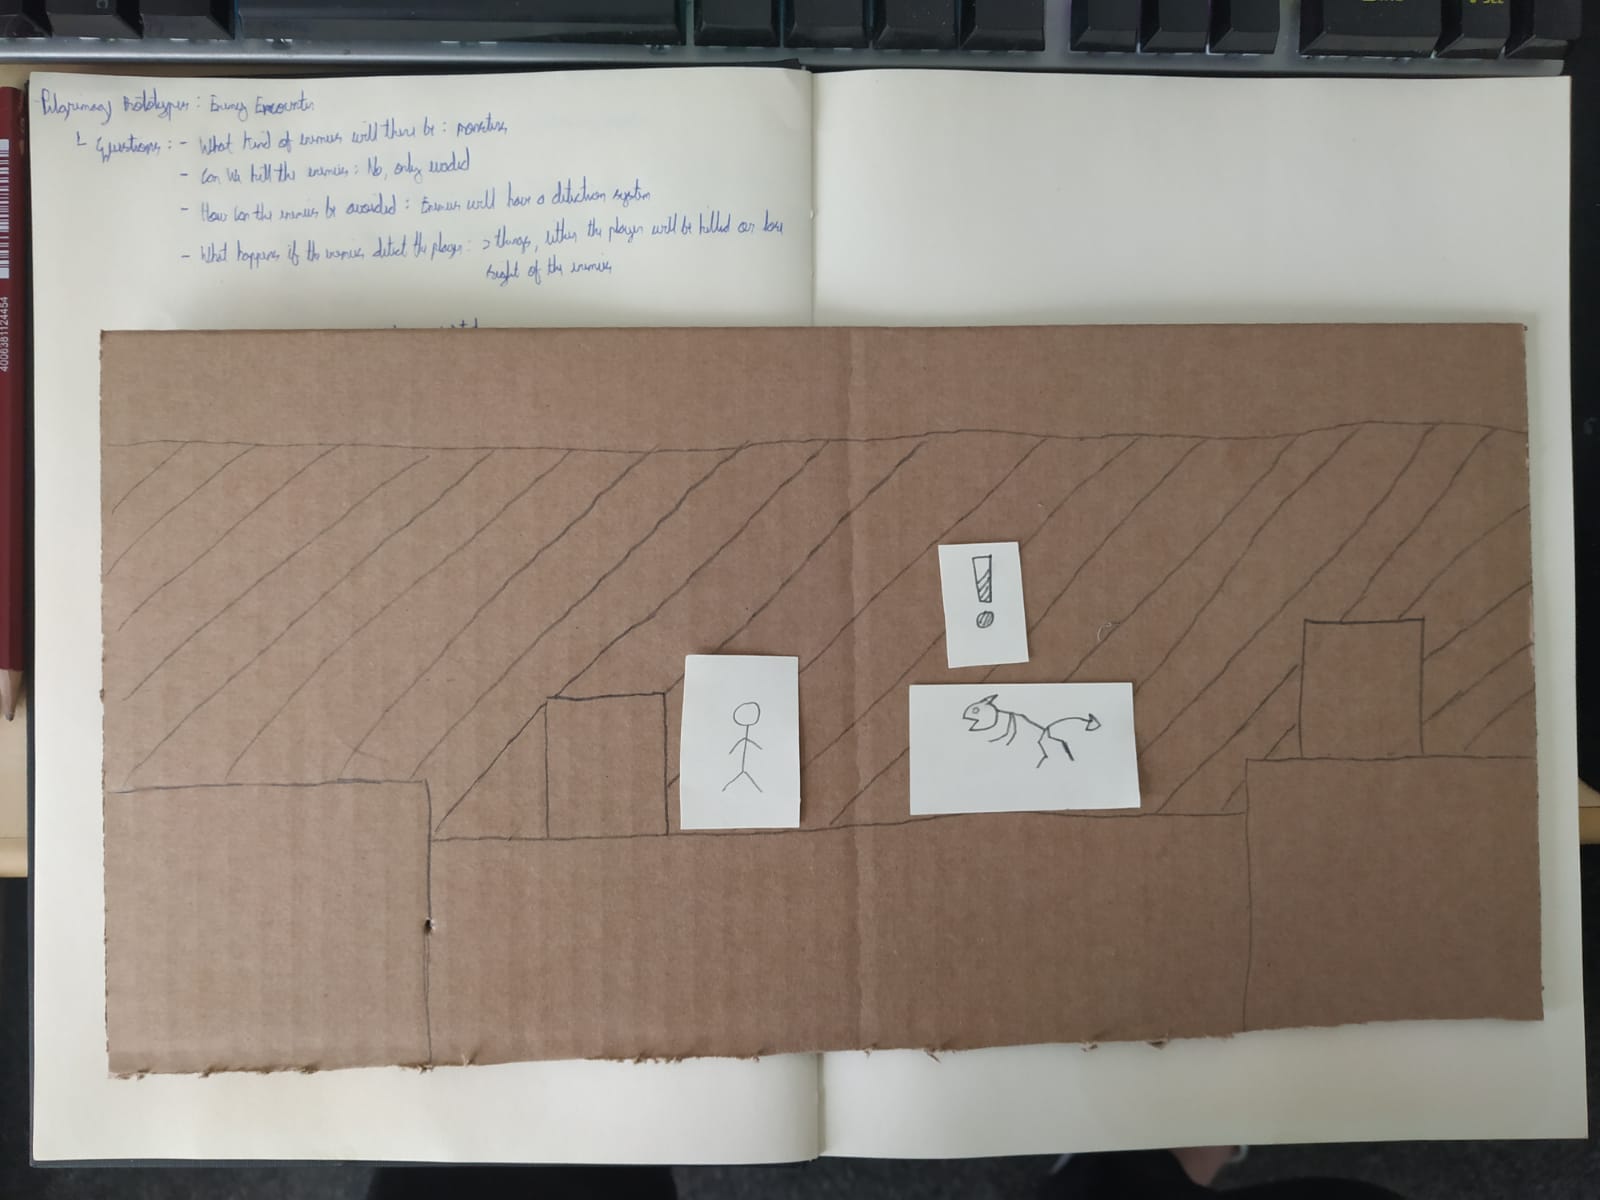 Pilgrimag Prototypes : Enemy Encounter
Questions : - What kind of enemies will there be : monsters
- Can we kill the enemies : No, only evaded
- How can the enemies be avoided : Enemies will have a detection system
- What happens if the enemies detect the player : 2 things, either the player will be killed or lose
sight of the enemies
!
4006381124454